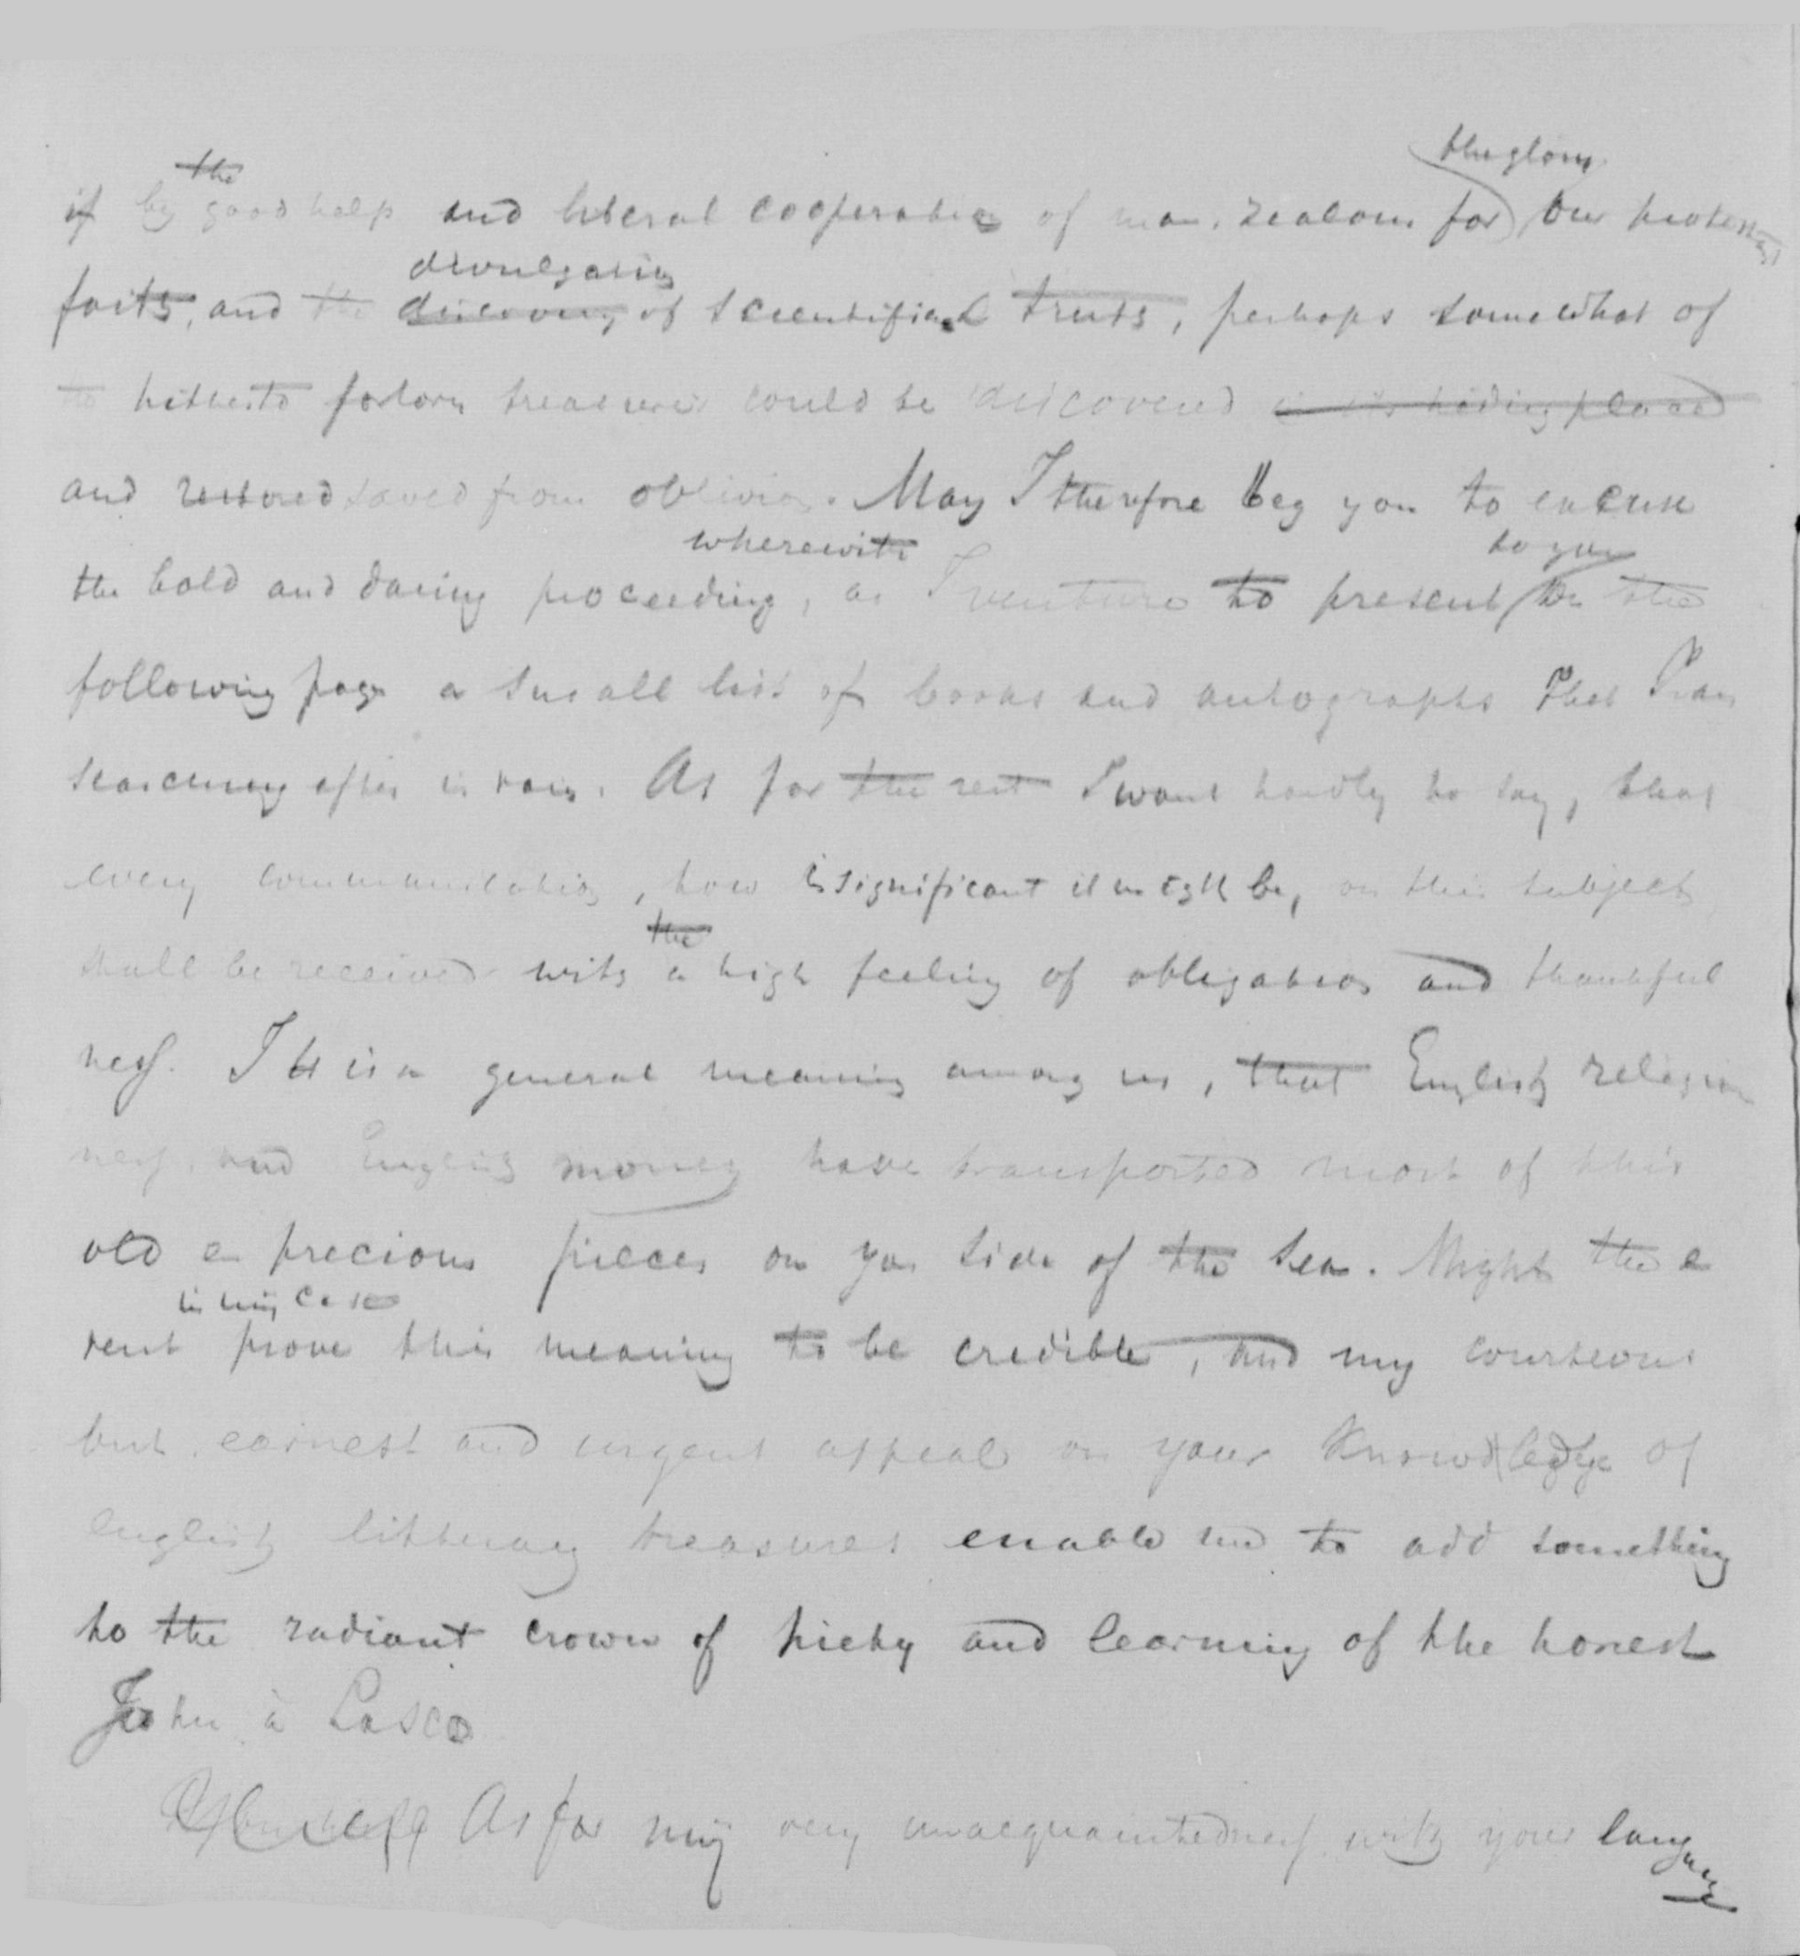 the
the glory
if by good help and liberal cooperation of man, zealous for our protestant
divulgating
faith, and the discovery of scientifical truth, perhaps somewhat of
the hitherto forlorn treasures could be discovered in its hiding placed
and restored saved from oblivion. May I therefore beg you to excuse
wherewith
to you
the bold and daring proceeding, as I venture to present on the
following page a small list of books and autographs that I am
searching after in vain. As for the rest I want hardly to say, that
every communication, how insignificant it might be, on this subject
the
shall be received with a high feeling of obligation and thankful
ness. It is a general meaning among us, that English religious
ness, and English money have transported most of this
old en precious pieces on your side of the sea. Might the e
in my case
vent prove this meaning to be credible, and my courteous
but earnest and urgent appeal on your knowledge of
english litterary treasures enable me to add something
to the radiant crown of piety and learning of the honest
John à Lasco
As for my very unacquaintedness with your language